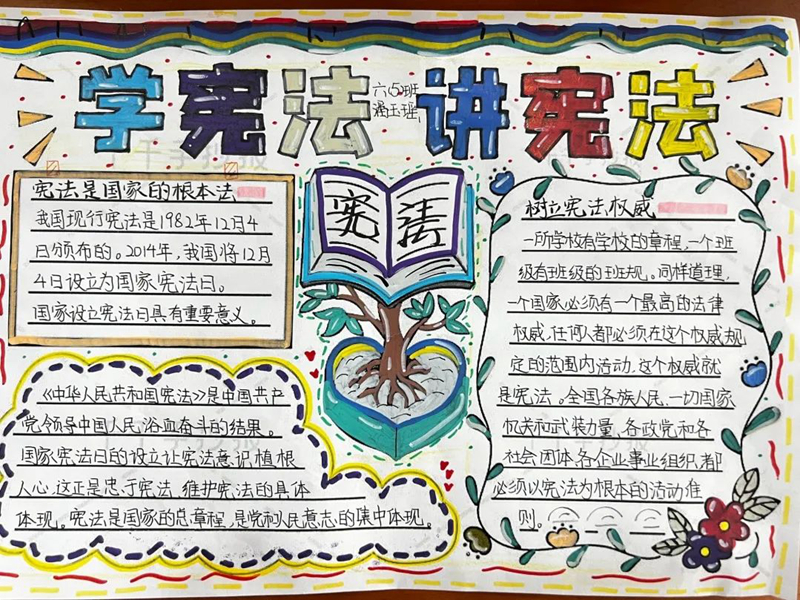 学宪法 讲宪法
六(5)班
宪法
宪法是国家的根本法
我国现行宪法是1982年12月4
日颁布的。2014年,我国将12月
4日设立为国家宪法日。
国家设立宪法日具有重要意义。
《中华人民共和国宪法》是中国共产
党领导中国人民浴血奋斗的结果。
国家宪法日的设立让宪法意识植根
人心,这正是忠于宪法、维护宪法的具体
体现。宪法是国家的总章程,是党和人民意志的集中体现。
树立宪法权威
一所学校有学校的章程,一个班
级有班级的班规。同样道理,
一个国家必须有一个最高的法律
权威,任何人都必须在这个权威规
定的范围内活动,这个权威就
是宪法。全国各族人民、一切国家
机关和武装力量、各政党和各
社会团体、各企业事业组织,都
必须以宪法为根本的活动准
则。